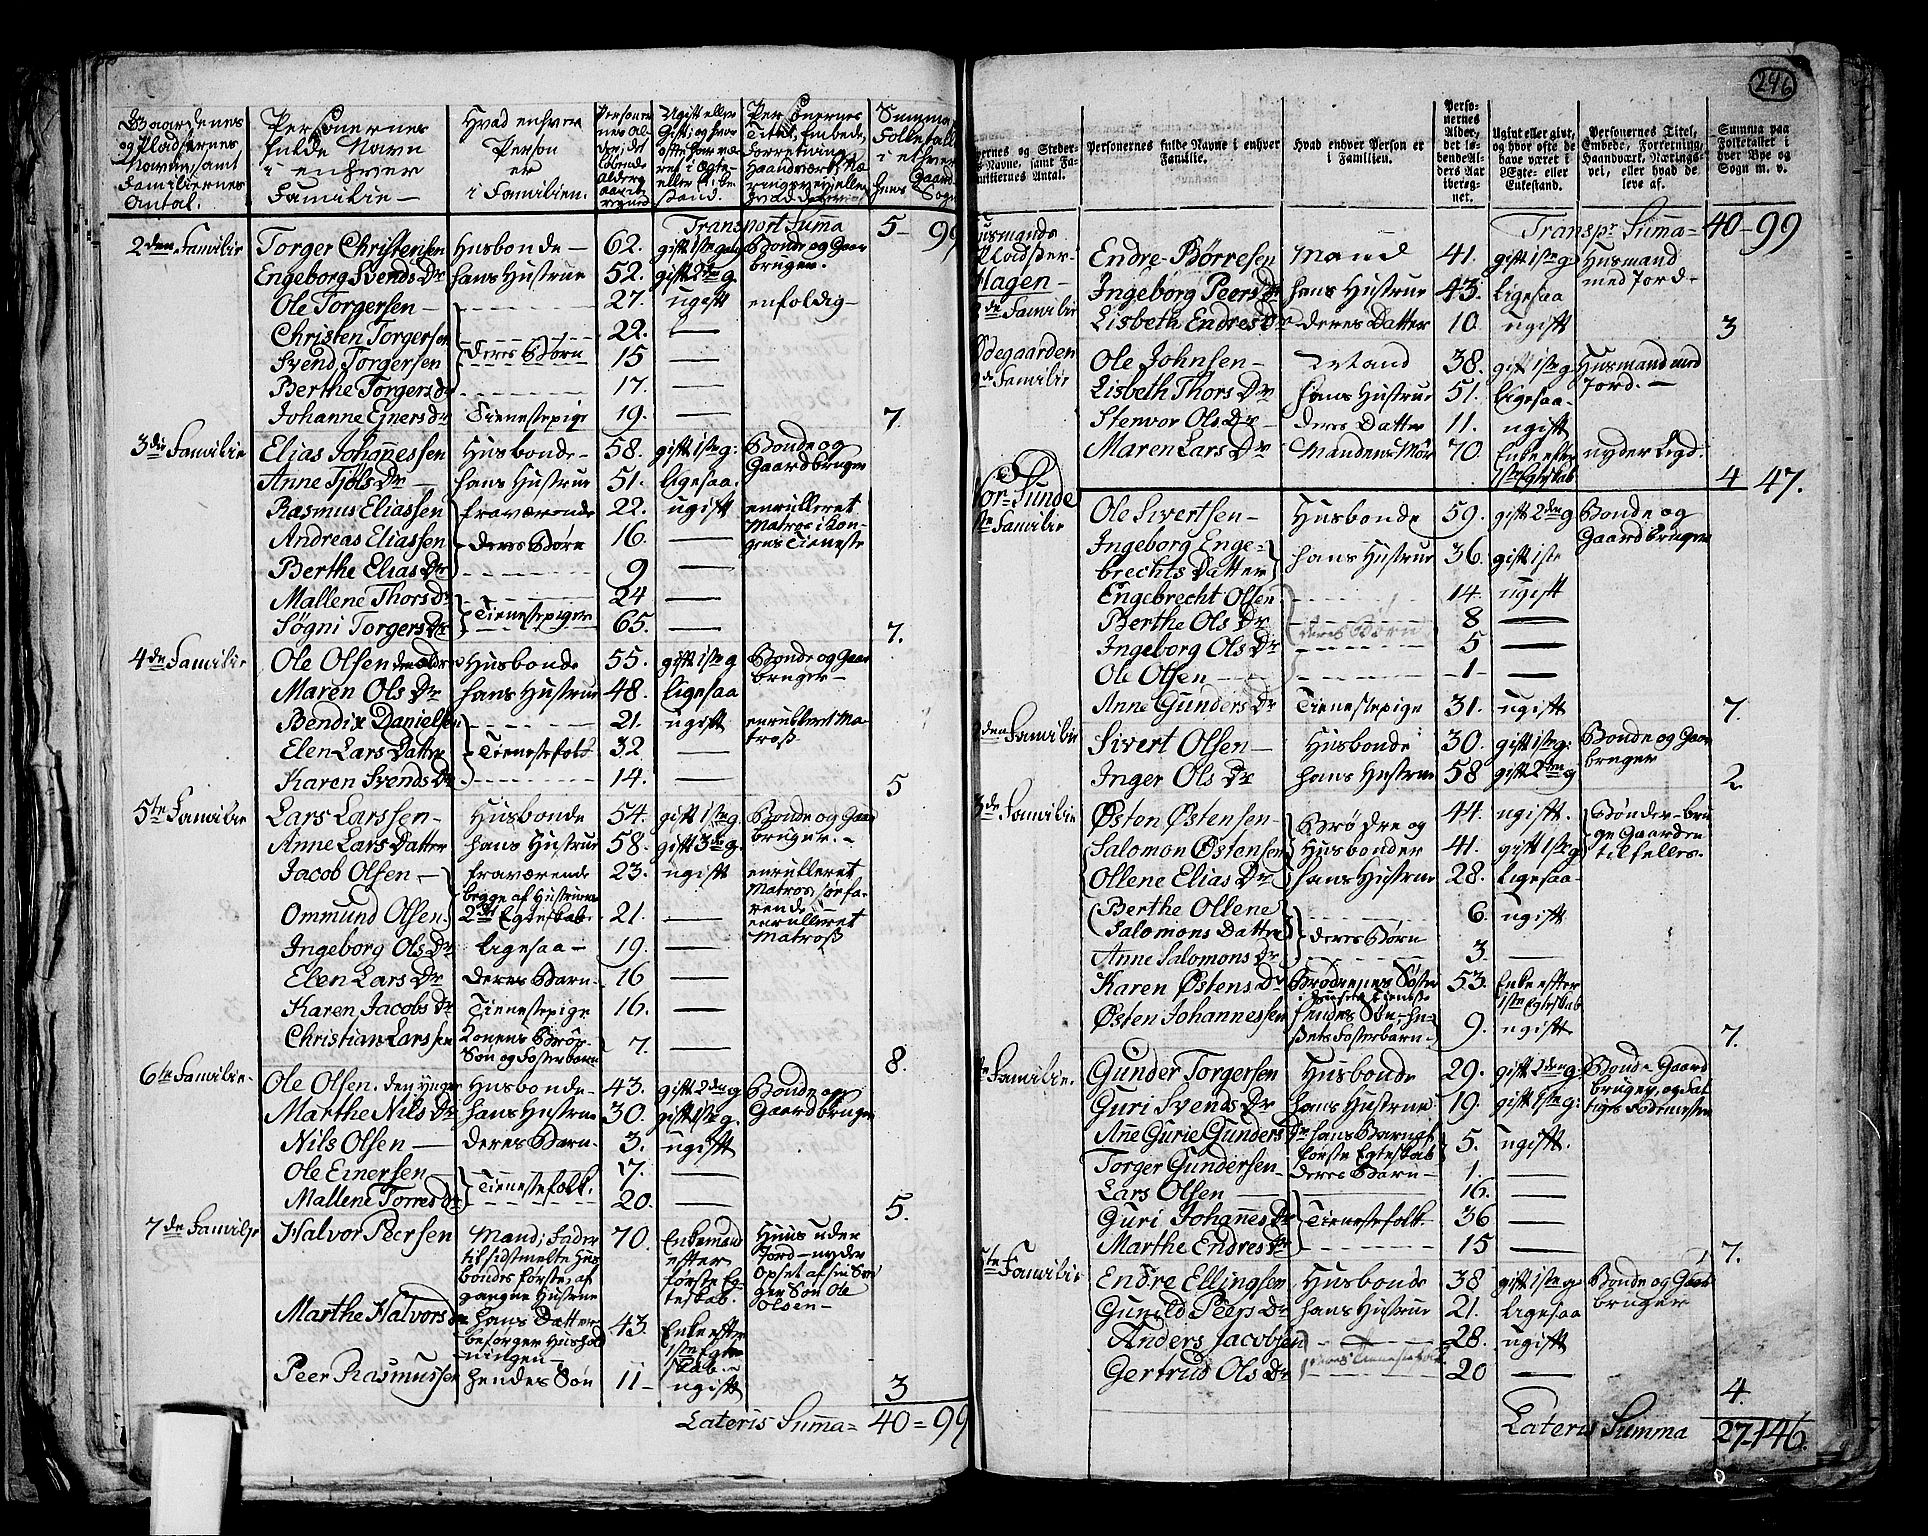 Gaardenes og Pladsernes Navne, samt Familiernes Antal.
Personernes fulde Navn i enhver Familie
Hvad enhver Person er i Familien.
Transport Summa 5 - 99
2den Familie Torger Christensen Husbonde 62. gift 1ste gang Bonde og Gaardbruger.
Engeborg Svends Dr hans Hustrue 52. gift 2den g.
Ole Torgersen 27. ugift enfoldig
Christen Torgersen 22.
Svend Torgersen deres Børn 15
Berthe Torgers Dr 17.
Johanne Ejners Dr Tienestepige 19. 7.
3die Familie Elias Johannessen Husbonde 58. gift 1ste g: Bonde og Gaardbruger
Anne Tjøls Dr hans Hustrue 51. ligesaa.
Rasmus Eliassen fraværende 22. ugift enrulleret Matros i Kongens Tieneste
Andreas Eliassen deres Børn 16.
Berthe Elias Dr 9
Mallene Thors Dr Tienestepiger 24
Søgni Torgers Dr 65. 7.
4de Familie Ole Olsen den Eldre Husbonde 55. gift 1ste g Bonde og Gaardbruger
Maren Ols Dr hans Hustrue 48. ligesaa
Bendix Danielsen 21. ugift enrulleret Matros
Elen Lars Datter Tienestefolk 32
Karen Svends Dr 14. 5
5te Familie Lars Larssen Husbonde 54. gift 1ste g. Bonde og Gaardbruger.
Anne Lars Datter hans Hustrue 58. gift 3die g.
Jacob Olsen fraværende 23. ugift enrulleret Matros, søefarende
Ommund Olsen begge af Hustruens 2det Egteskab 21. enrulleret Matros
Ingeborg Ols Dr ligesaa 19.
Elen Lars Dr deres Barn 16
Karen Jacobs Dr Tienestepige 16.
Christian Larssen Konens Broder Søn og Fosterbarn 7. 8.
6te Familie Ole Olsen den ynger Husbonde 43. gift 2den g Bonde og Gaardbruger
Marthe Nils Dr hans Hustrue 30. gift 1ste g.
Nils Olsen deres Barn 3. ugift
Ole Einersen Tienestefolk. 17.
Mallene Torres Dr 20. 5.
7de Familie Halvor Peersen Mand, Fader til sidstmelte Husbondes første, afgangne Hustrue 70. Enkemand efter første Egteskab. Huus uden Jord nyder Opset af sin Svigersøn Ole Olsen
Marthe Halvors Dr hans Datter besørger Husholdningen 43 Enke efter 1ste Egteskab.
Peer Rasmussen hendes Søn 11 ugift 3
Lateris Summa = 40 = 99
246
Personernes fulde Navne i enhver Familie.
Hvad enhver Person er i Familien.
Personernes Alder, det løbende Alders Aar iberegnet.
Ugivt eller givt, og hvor ofte de have været i Egte- eller Enkestand.
Personernes Titel, Embede, Forretning, Haandværk, Næringsvei, eller hvad de leve af.
Summa paa Folketallet i hver Bye og Sogn m. v.
Transpt Summa = 40 - 99
Husmands Pladser
Hagen Endre Børresen Mand 41. gift 1ste g Husmand med Jord
Ingeborg Peers Dr hans Hustrue 43. ligesaa
Lisbeth Endres Dr deres Datter 10. ugift 3
Ødegaarden Ole Johnsen Mand 38. gift 1ste g Husmand med Jord.
Lisbeth Thors Dr hans Hustrue 51. ligesaa
Stenvor Ols Dr deres Datter 11. ugift
Maren Lars Dr Mandens Moer 70 Enke efter 1ste Egteskab nyder Lægd. 4 47.
Nor-Sunde
1ste Familie Ole Sivertsen Husbonde 59. gift 2den g Bonde og Gaardbruger
Ingeborg Engebrechts Datter hans Hustrue 36. gift 1ste
Engebrecht Olsen 14. ugift
Berthe Ols Dr deres Børn 8
Ingeborg Ols Dr 5
Ole Olsen 1
Anne Gunders Dr Tienestepige 31. ugift 7.
2den Familie Sivert Olsen Husbonde 30. gift 1ste g: Bonde og Gaardbruger
Inger Ols Dr hans Hustrue 58 gift 2den g 2
3die Familie Østen Østensen Brødre og 44. ugift. Bønder bruge Gaarden tilfelles.
Salomon Østensen Husbonder 41. gift 1ste g
Ollene Elias Dr hans Hustrue 28. ligesaa
Berthe Ollene Salomons Datter deres Børn 6. ugift
Anne Salomons Dr 3.
Karen Østens Dr Brødrenes Søster i Huset Tieneste 53. Enke efter 1ste Egteskab
Østen Johannessen hendes Søn Husets Fosterbarn 9. ugift 7.
Familie. Gunder Torgersen Husbonde 29. gift 2den g: Bonde Gaardbruger, og Fattiges Fodermester
Guri Svends Dr hans Hustrue 19. gift 1ste g:
Anne Gurie Gunders Dr hans Barn af første Egteskab 5. ugift.
Torger Gundersen deres Barn 1.
Lars Olsen 16.
Guri Johannes Dr Tienestefolk 36
Marthe Endres Dr 15 7.
5te Familie Endre Ellingsen Husbonde 38 gift 1ste g Bonde og Gaardbruger
Gunild Peers Dr hans Hustrue 21. ligesaa
Anders Jacobsen 28. ugift
deres Tienestefolk
Gertrud Ols Dr 20 4.
Lateris Summa 27-146.